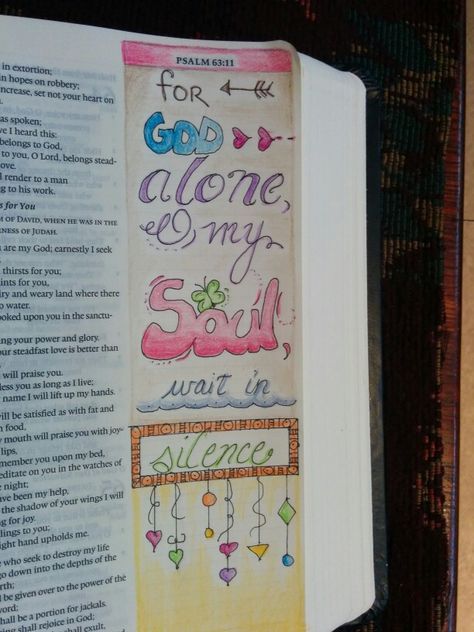 in extortion;
in hopes on robbery;
increase, set not your heart on
as spoken;
I heard this:
belongs to God,
to you, O Lord, belongs stead-
render to a man
to his work.
for You
OF DAVID, WHEN HE WAS IN THE
OF JUDAH.
are my God; earnestly I seek
thirsts for you;
for you,
and weary land where there
water.
looked upon you in the sanctu-
your power and glory.
your steadfast love is better than
will praise you.
you as long as I live;
name I will lift up my hands.
will be satisfied as with fat and
food,
mouth will praise you with joy-
lips,
remember you upon my bed,
meditate on you in the watches of
night;
have been my help,
the shadow of your wings I will
for joy.
clings to you;
right hand upholds me.
who seek to destroy my life
go down into the depths of the
be given over to the power of the
shall be a portion for jackals.
shall rejoice in God;
shall exult,
PSALM 63:11
for
GOD
alone,
O, my
Soul,
wait in
silence